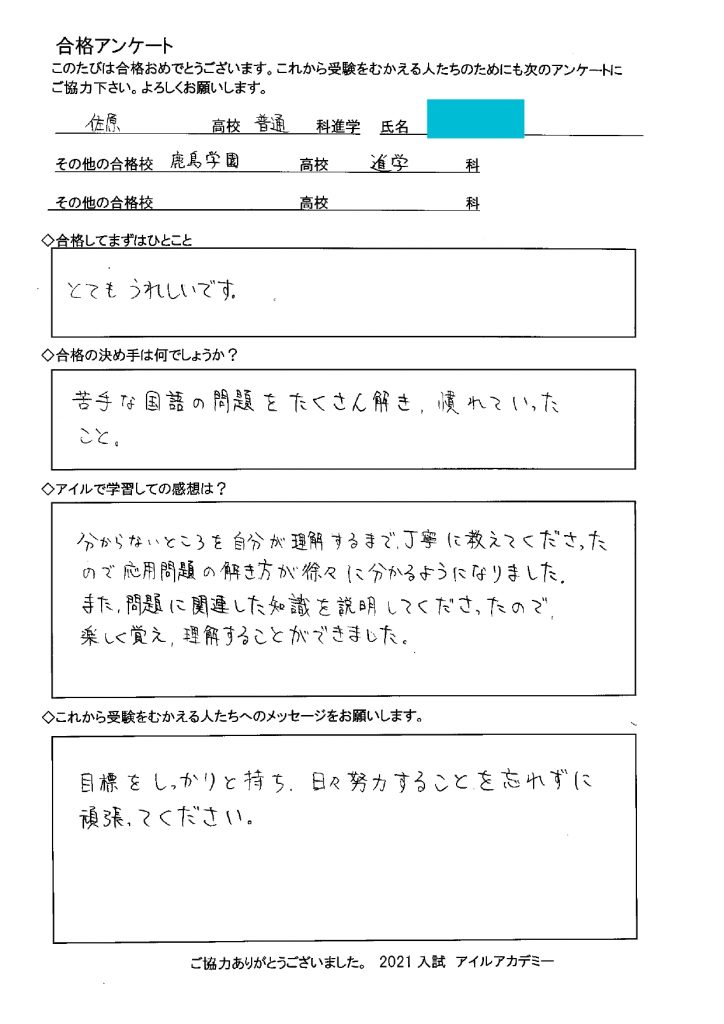 合格アンケート
このたびは合格おめでとうございます。これから受験をむかえる人たちのためにも次のアンケートに
ご協力下さい。よろしくお願いします。
佐原 高校 普通 科進学 氏名
その他の合格校 鹿島学園 高校 進学 科
その他の合格校 高校 科
◇合格してまずはひとこと
とても うれしいです。
◇合格の決め手は何でしょうか？
苦手な国語の問題をたくさん解き、慣れていった
こと。
◇アイルで学習しての感想は？
分からないところを自分が理解するまで、丁寧に教えてくださった
ので応用問題の解き方が徐々に分かるようになりました。
また、問題に関連した知識を説明してくださったので、
楽しく覚え、理解することができました。
◇これから受験をむかえる人たちへのメッセージをお願いします。
目標をしっかりと持ち、日々努力することを忘れずに
頑張ってください。
ご協力ありがとうございました。 2021 入試 アイルアカデミー